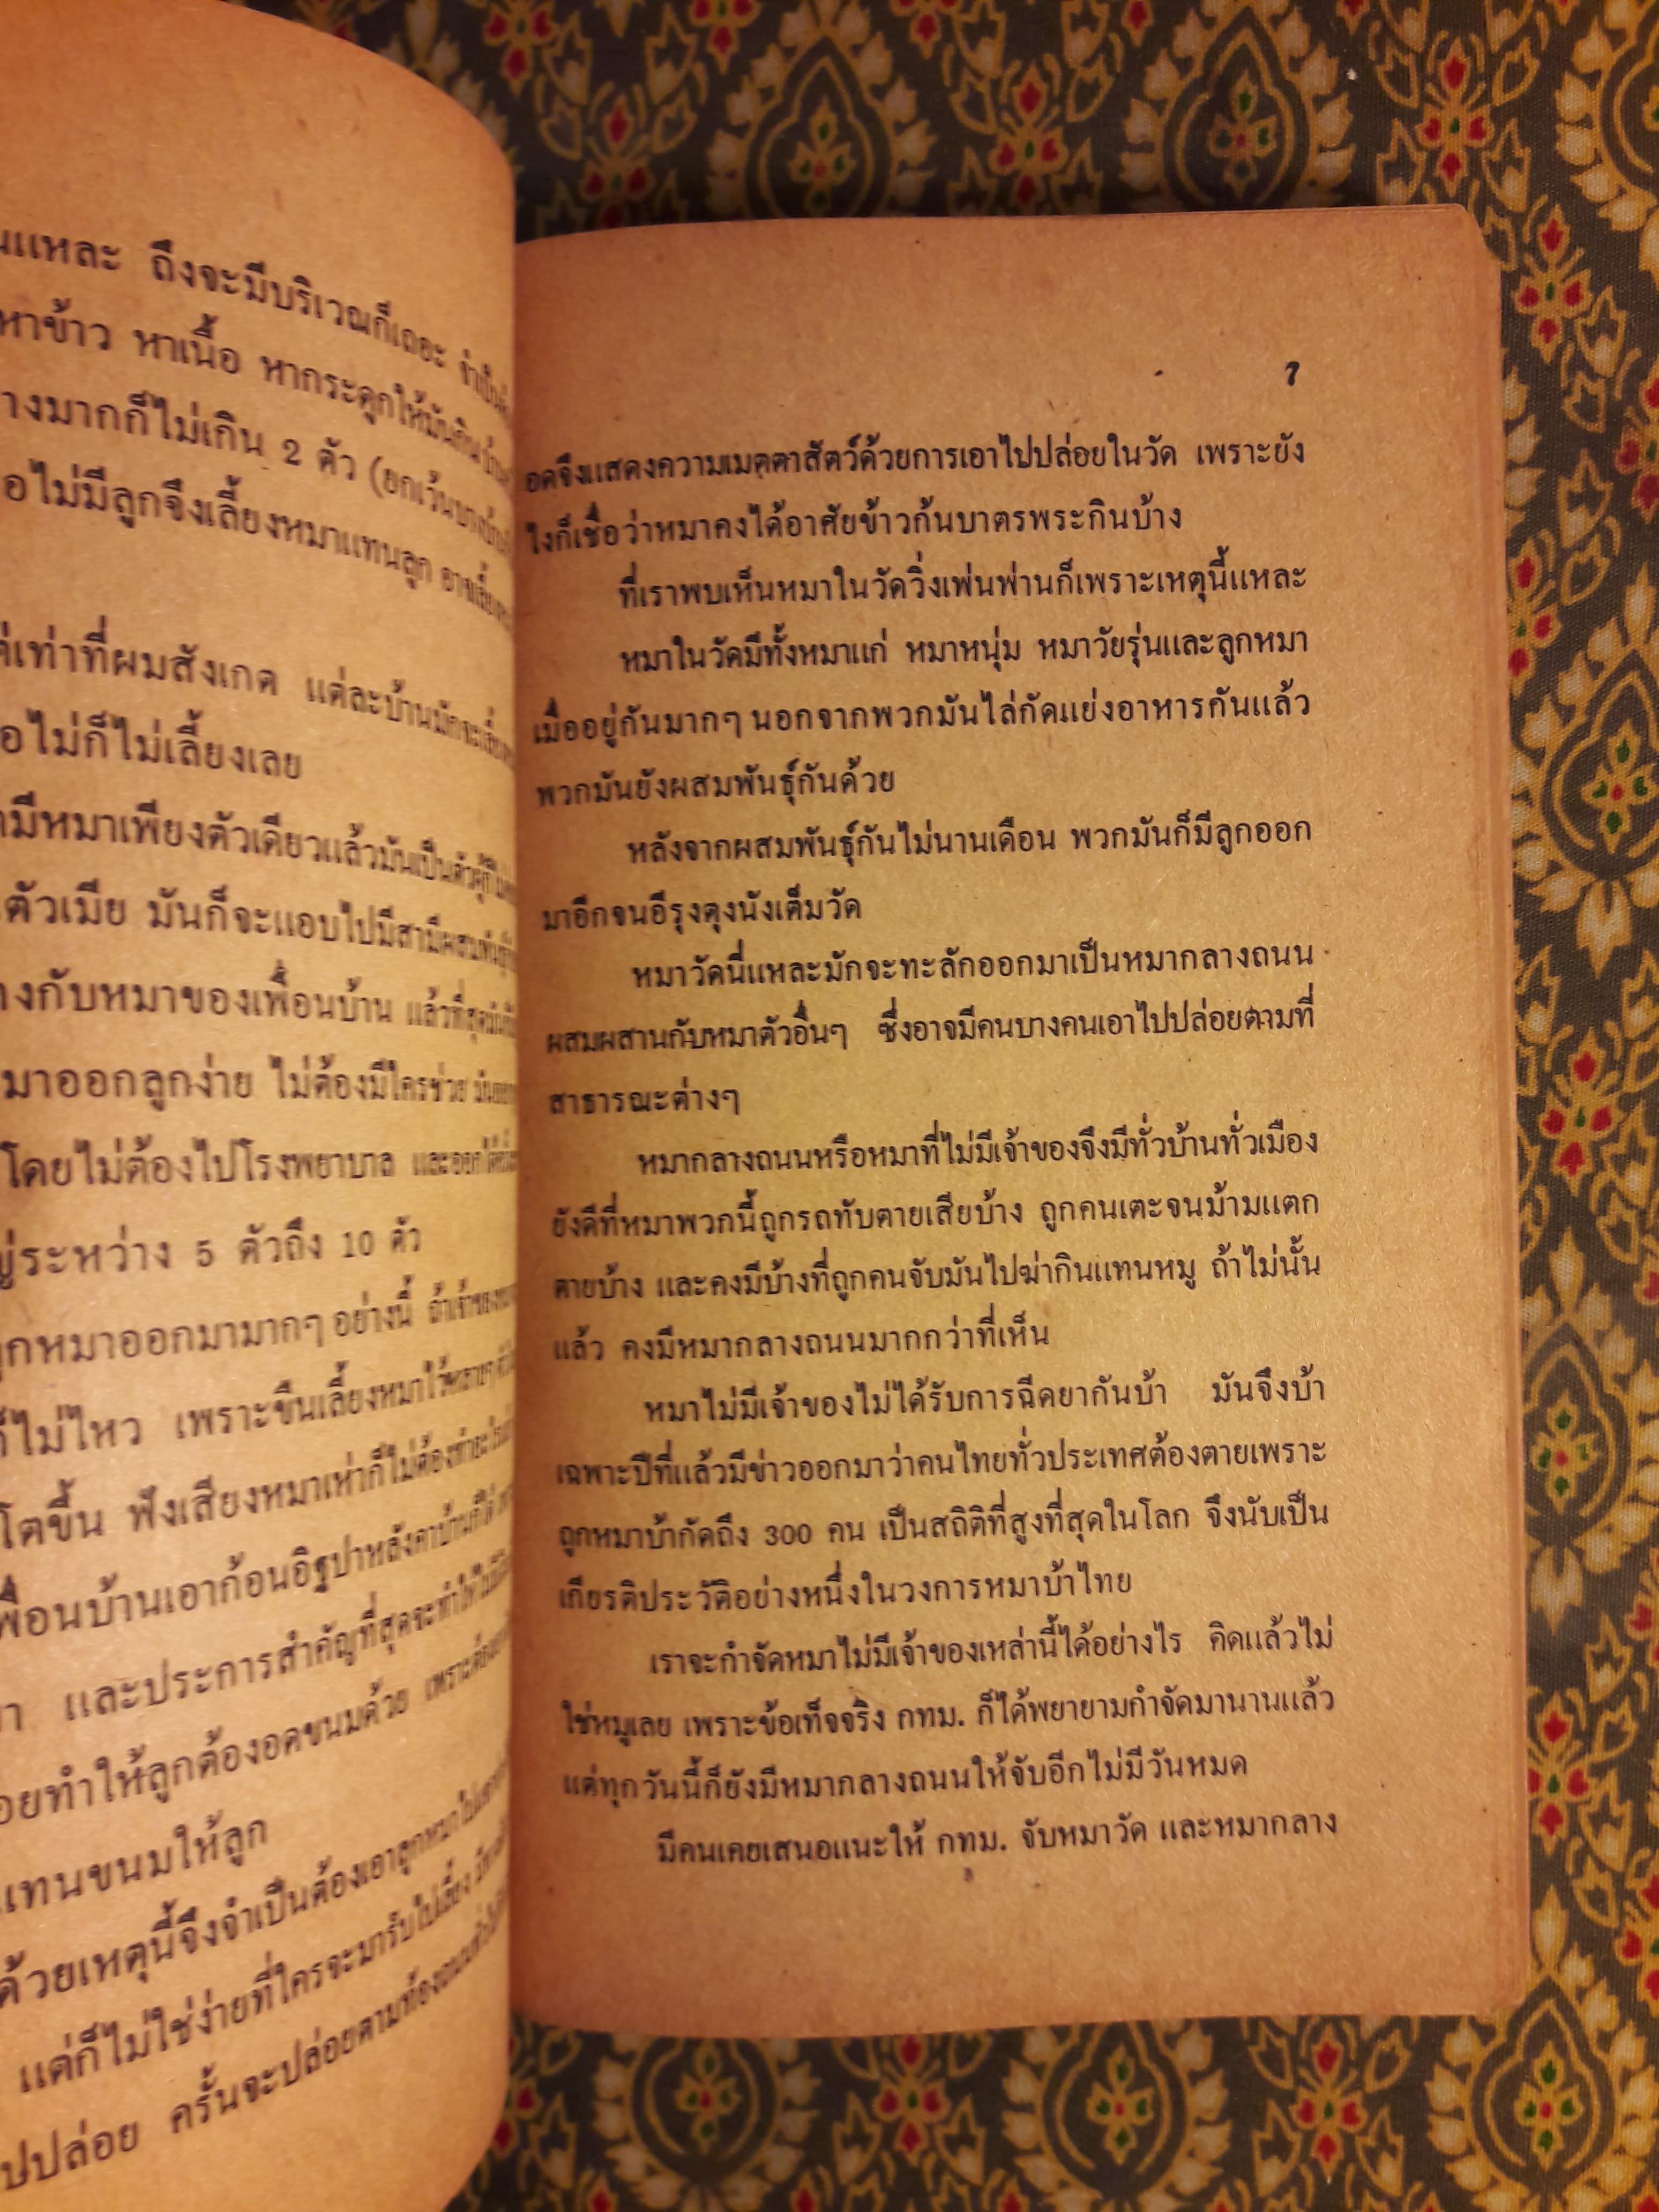 นแหละ ถึงจะมีบริเวณก็เถอะ
หาข้าว หาเนื้อ หากระดูกให้มันกิน
างมากก็ไม่เกิน 2 ตัว (ยกเว้นบางบ้าน
อไม่มีลูกจึงเลี้ยงหมาแทนลูก
ต่เท่าที่ผมสังเกต แต่ละบ้านมักจะเลี้ยง
อไม่ก็ไม่เลี้ยงเลย
ามีหมาเพียงตัวเดียวแล้วมันเป็นตัวผู้
ตัวเมีย มันก็จะแอบไปมีสามีผสมพันธุ์
างกับหมาของเพื่อนบ้าน แล้วที่สุด
มาออกลูกง่าย ไม่ต้องมีใครช่วย
โดยไม่ต้องไปโรงพยาบาล และออก
ญ่ระหว่าง 5 ตัวถึง 10 ตัว
ูกหมาออกมามากๆ อย่างนี้ ถ้าเจ้าของ
ก็ไม่ไหว เพราะขืนเลี้ยงหมาไว้หลายๆ
โตขึ้น ฟังเสียงหมาเห่าก็ไม่ต้องทำอะไร
พื่อนบ้านเอาก้อนอิฐปาหลังคาบ้านก็ได้
และประการสำคัญที่สุดจะทำให้
อยทำให้ลูกต้องอดขนมด้วย เพราะต้อง
แทนขนมให้ลูก
ด้วยเหตุนี้จึงจำเป็นต้องเอาลูกหมาไป
แต่ก็ไม่ใช่ง่ายที่ใครจะมารับไปเลี้ยง
ปปล่อย ครั้นจะปล่อยตามท้องถนน
7
อดจึงแสดงความเมตตาสัตว์ด้วยการเอาไปปล่อยในวัด เพราะยัง
ไงก็เชื่อว่าหมาคงได้อาศัยข้าวก้นบาตรพระกินบ้าง
ที่เราพบเห็นหมาในวัดวิ่งเพ่นพ่านก็เพราะเหตุนี้แหละ
หมาในวัดมีทั้งหมาแก่ หมาหนุ่ม หมาวัยรุ่นและลูกหมา
เมื่ออยู่กันมากๆ นอกจากพวกมันไล่กัดแย่งอาหารกันแล้ว
พวกมันยังผสมพันธุ์กันด้วย
หลังจากผสมพันธุ์กันไม่นานเดือน พวกมันก็มีลูกออก
มาอีกจนอีรุงตุงนังเต็มวัด
หมาวัดนี่แหละมักจะทะลักออกมาเป็นหมากลางถนน
ผสมผสานกับหมาตัวอื่นๆ ซึ่งอาจมีคนบางคนเอาไปปล่อยตามที่
สาธารณะต่างๆ
หมากลางถนนหรือหมาที่ไม่มีเจ้าของจึงมีทั่วบ้านทั่วเมือง
ยังดีที่หมาพวกนี้ถูกรถทับตายเสียบ้าง ถูกคนเตะจนม้ามแตก
ตายบ้าง และคงมีบ้างที่ถูกคนจับมันไปฆ่ากินแทนหมู ถ้าไม่นั้น
แล้ว คงมีหมากลางถนนมากกว่าที่เห็น
หมาไม่มีเจ้าของไม่ได้รับการฉีดยากันบ้า มันจึงบ้า
เฉพาะปีที่แล้วมีข่าวออกมาว่าคนไทยทั่วประเทศต้องตายเพราะ
ถูกหมาบ้ากัดถึง 300 คน เป็นสถิติที่สูงที่สุดในโลก จึงนับเป็น
เกียรติประวัติอย่างหนึ่งในวงการหมาบ้าไทย
เราจะกำจัดหมาไม่มีเจ้าของเหล่านี้ได้อย่างไร คิดแล้วไม่
ใช่หมูเลย เพราะข้อเท็จจริง กทม. ก็ได้พยายามกำจัดมานานแล้ว
แต่ทุกวันนี้ก็ยังมีหมากลางถนนให้จับอีกไม่มีวันหมด
มีคนเคยเสนอแนะให้ กทม. จับหมาวัด และหมากลาง